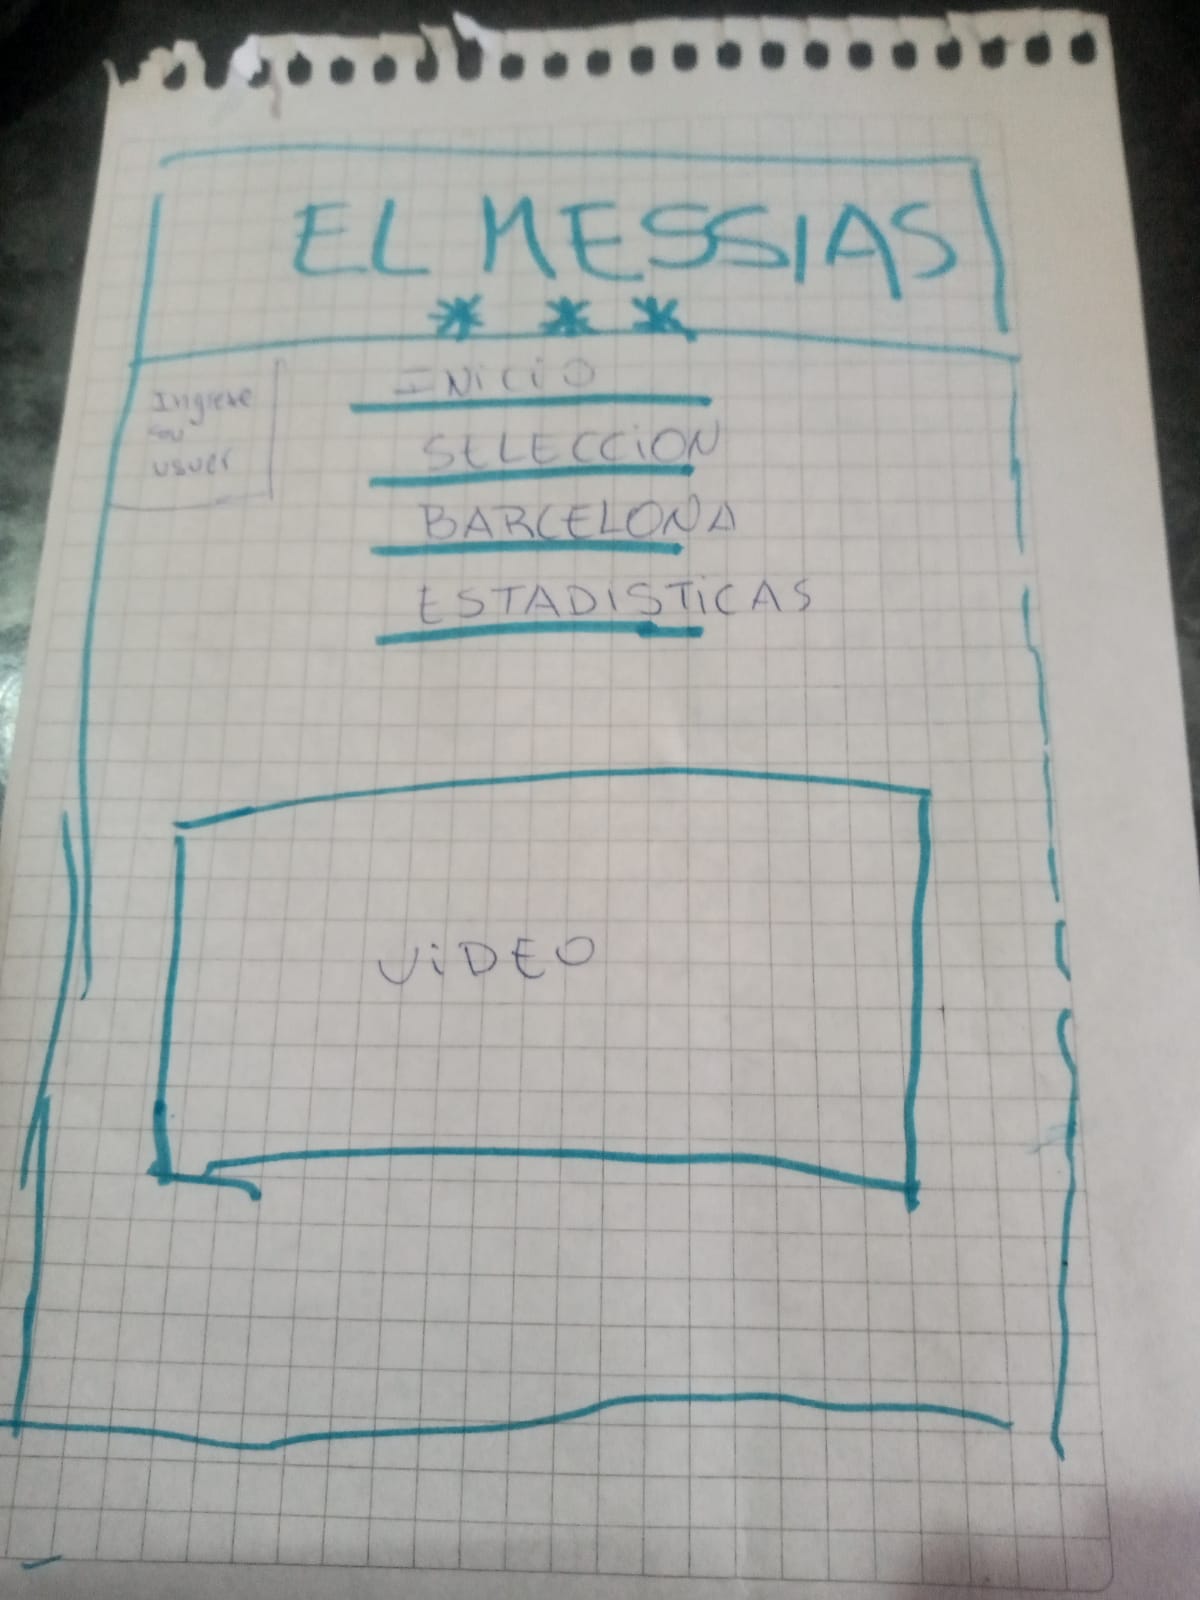 EL MESSIAS
* * *
Ingrese
su
usuer
INICIO
SELECCION
BARCELONA
ESTADISTICAS
VIDEO